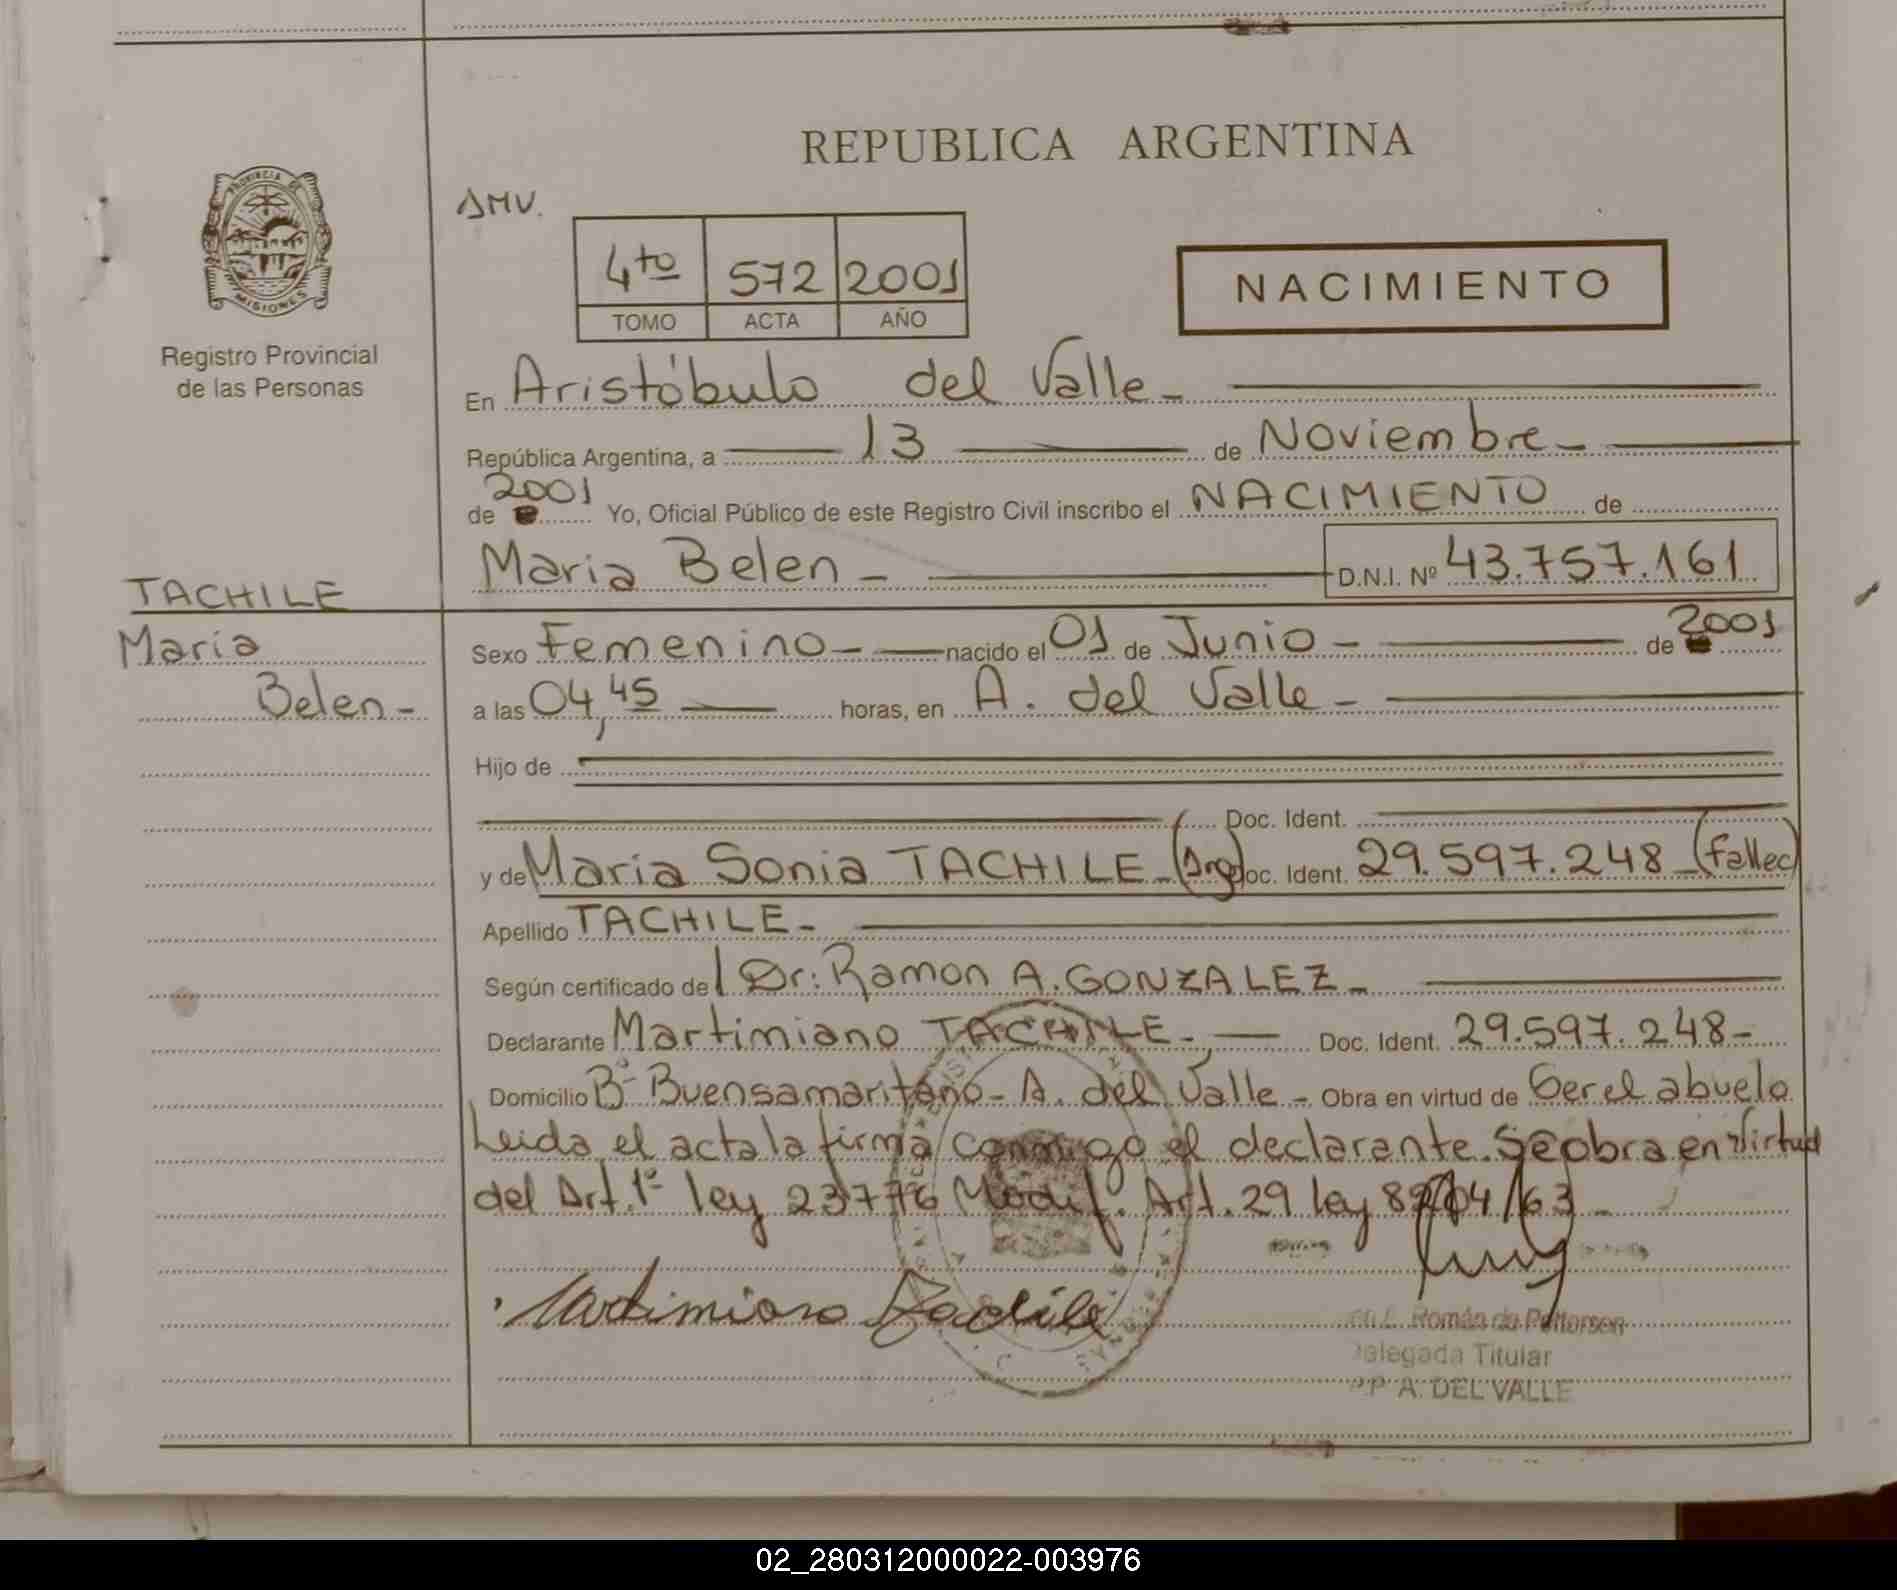 REPUBLICA ARGENTINA
PROVINCIA DE
MISIONES
Registro Provincial
de las Personas
AMV.
4to 572 2001
TOMO ACTA AÑO
NACIMIENTO
En Aristóbulo del Valle-
República Argentina, a 13 de Noviembre-
de 2001 Yo, Oficial Público de este Registro Civil inscribo el NACIMIENTO de
Maria Belen - D.N.I. Nº 43.757.161
TACHILE
Maria
Belen-
Sexo Femenino- nacido el 01 de Junio- de 2001
a las 04,45 horas, en A. del Valle-
Hijo de
Doc. Ident.
y de Maria Sonia TACHILE-(Arg) Doc. Ident. 29.597.248-(fallec)
Apellido TACHILE-
Según certificado del Dr: Ramon A. GONZALEZ-
Declarante Martimiano TACHILE- Doc. Ident. 29.597.248-
Domicilio Bº Buensamaritano- A. del Valle- Obra en virtud de Ser el abuelo
Leida el acta la firma conmigo el declarante. Se obra en virtud
del Art. 1º ley 23776 Modif. Art. 29 ley 8204/63-
Martimiano Tachile
Román de Pettersen
Delegada Titular
A. DEL VALLE
02_280312000022-003976